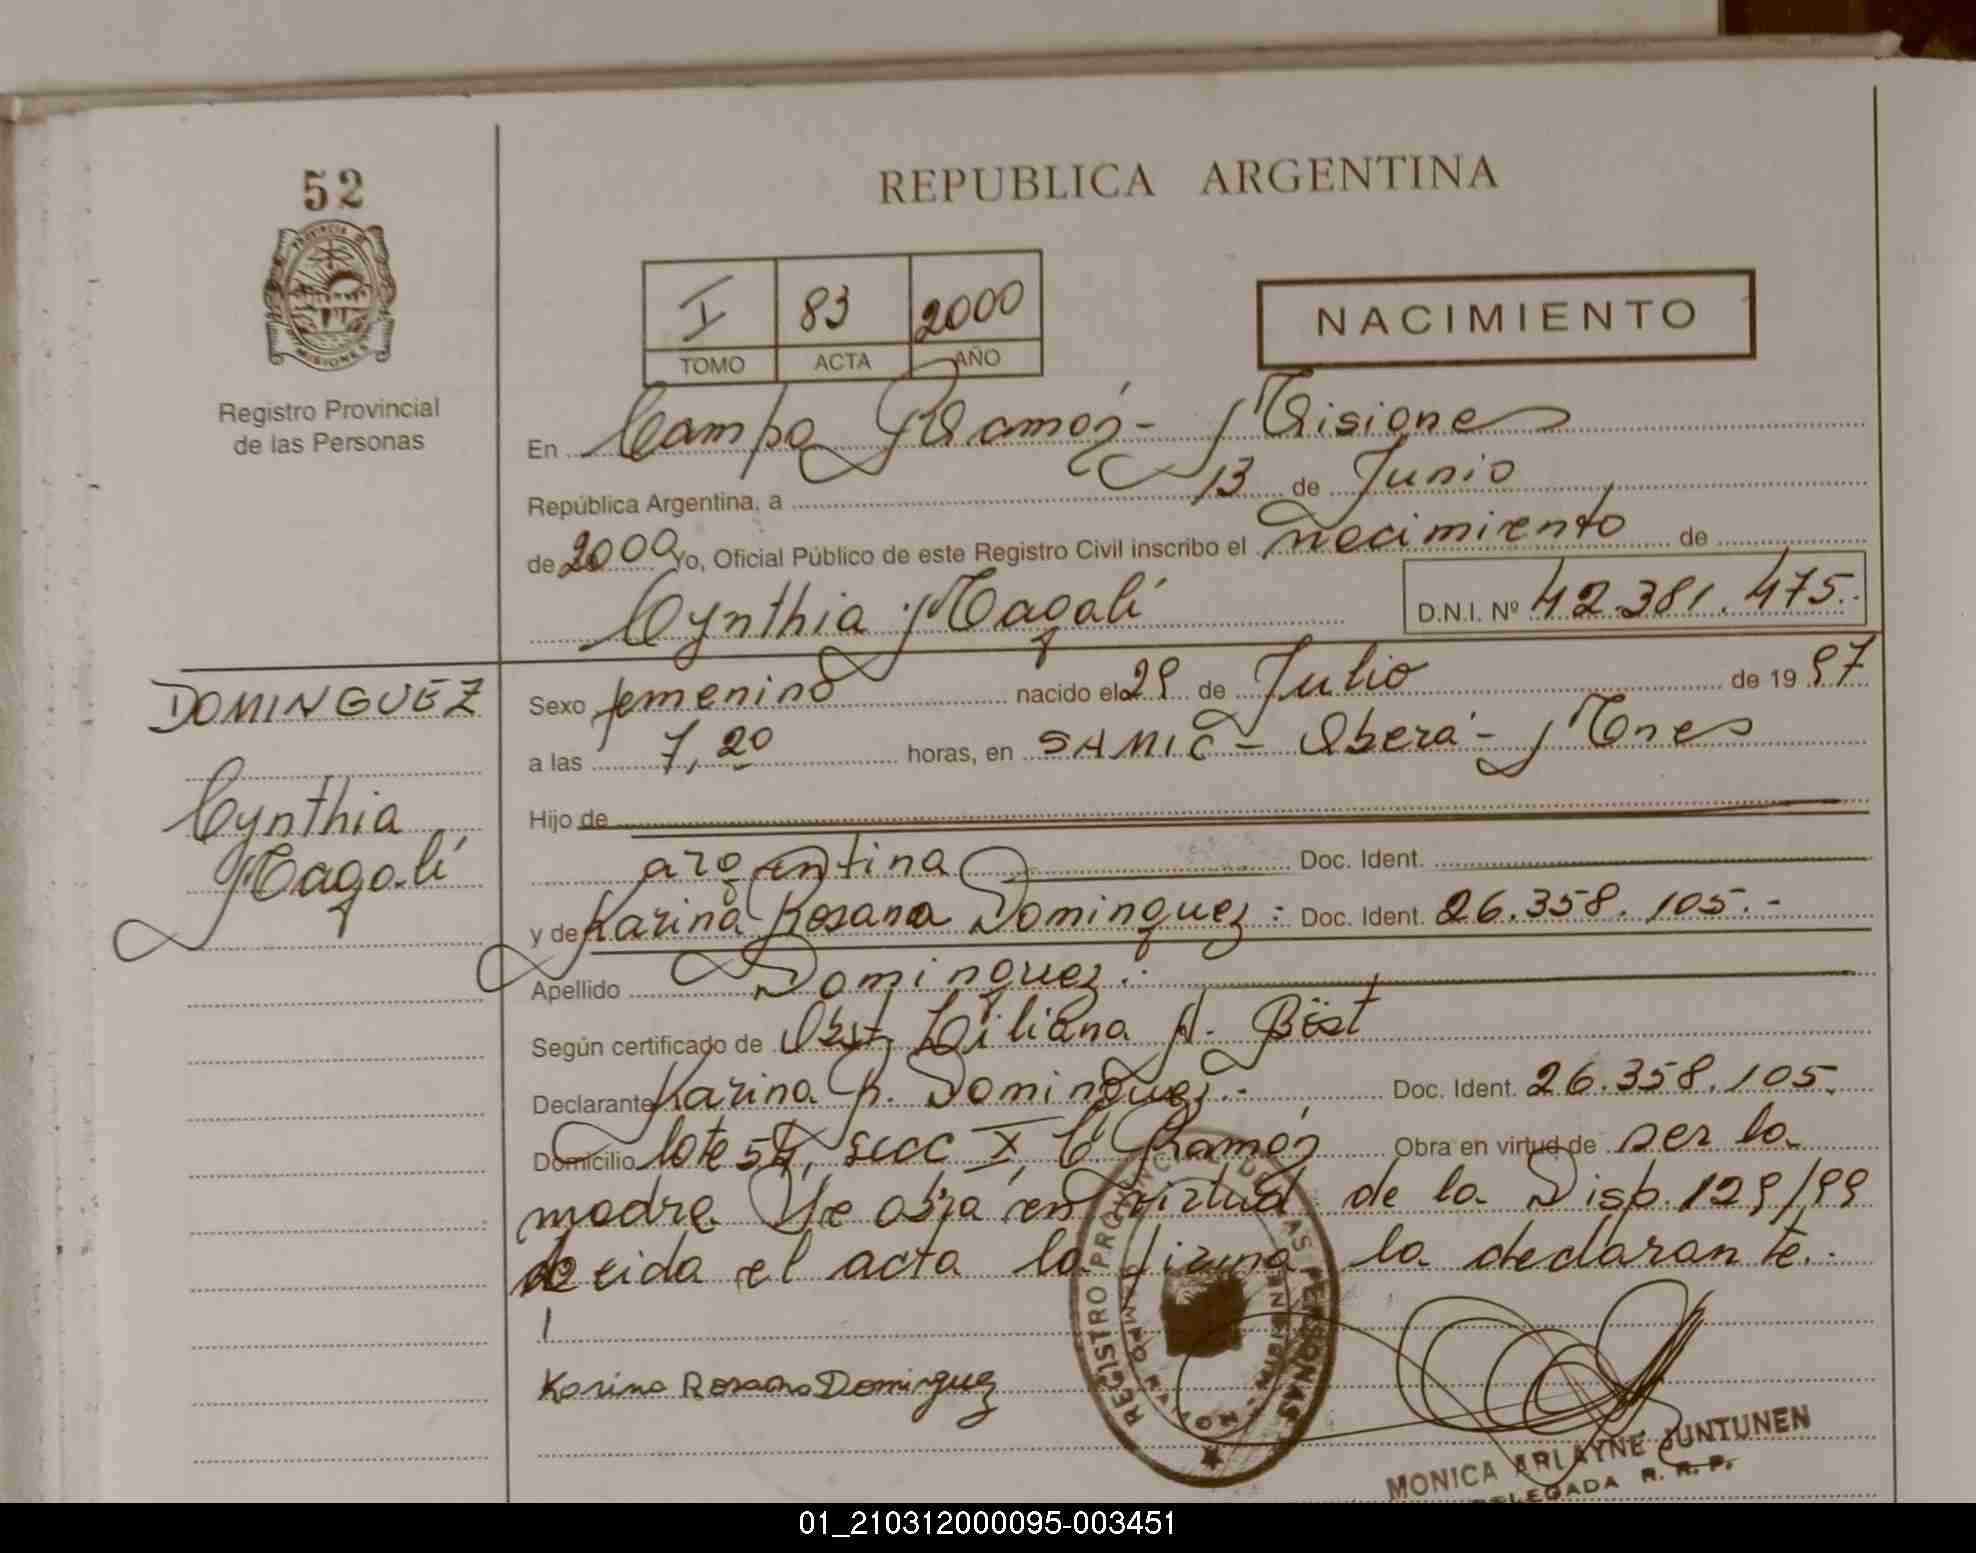 52
PROVINCIA DE
MISIONES
Registro Provincial
de las Personas
REPUBLICA ARGENTINA
I 83 2000
TOMO ACTA AÑO
NACIMIENTO
En Campo Ramón - Misiones
República Argentina, a 13 de Junio
de 2000 Yo, Oficial Público de este Registro Civil inscribo el nacimiento de
Cynthia Magalí D.N.I. Nº 42.381.475.
DOMINGUEZ
Cynthia
Magalí
Sexo femenino nacido el 29 de Julio de 19 97
a las 7,20 horas, en SAMIC - Oberá - Mnes
Hijo de
argentina Doc. Ident.
y de Karina Rosana Dominguez: Doc. Ident. 26.358.105.-
Apellido Dominguez.
Según certificado de Obst. Liliana A. Böst
Declarante Karina R. Dominguez.- Doc. Ident. 26.358.105.
Domicilio lote 54, secc X C Ramón Obra en virtud de ser la
madre Se obra en virtud de la Disp. 129/99
Leida el acta la firma la declarante.
Karina Rosana Dominguez
REGISTRO PROVINCIAL DE LAS PERSONAS
MONICA ARLAYNE JUNTUNEN
DELEGADA R. R. P.
01_210312000095-003451